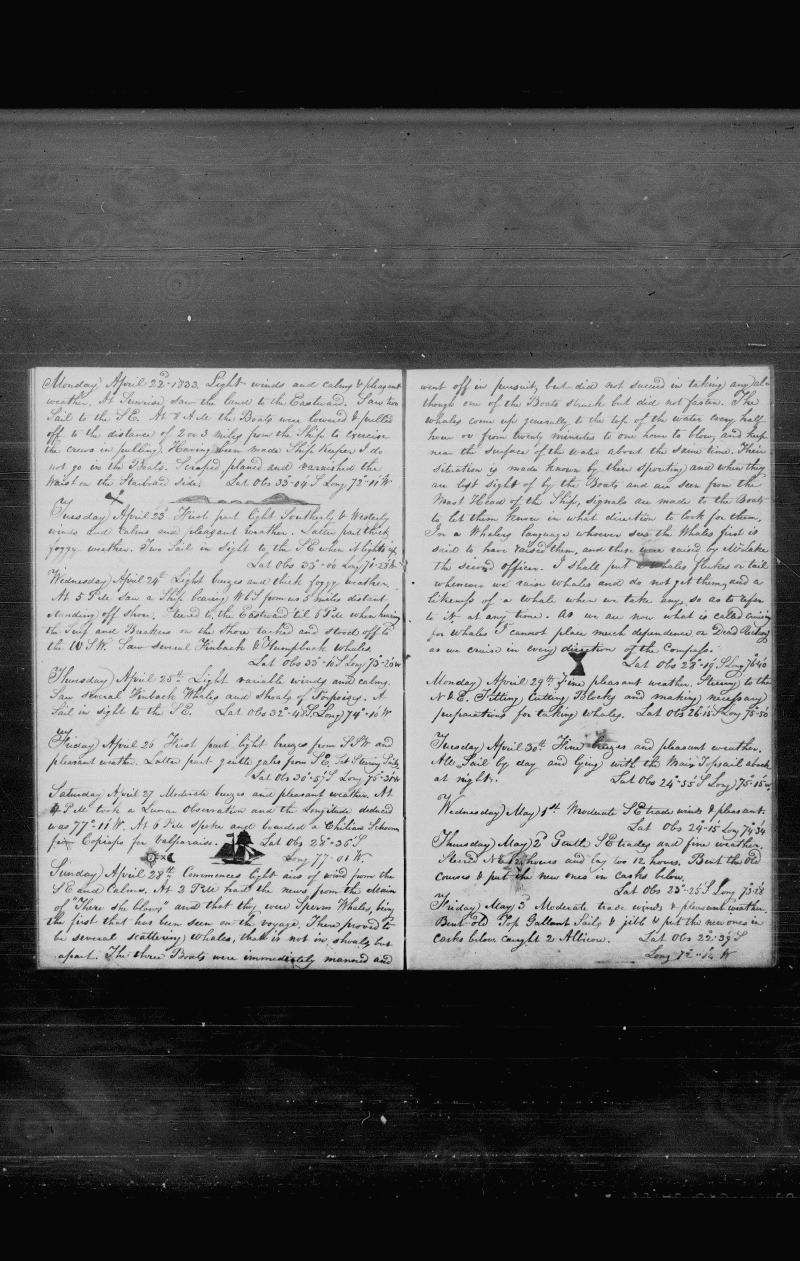 Monday April 22d 1833. Light winds and calms & pleasant
weather. At Sunrise saw the land to the Eastward. Saw two
Sail to the S E. At 8 A M the Boats were lowered & pulled
off to the distance of 2 or 3 miles from the Ship to exercise
the crews in pulling. Having been made Ship Keeper I do
not go in the Boats. Scraped planed and varnished the
Waist on the Starboard side. Lat Obs 33°-04' S Long 72°-11' W
Tuesday April 23 First part light Southerly & Westerly
winds and Calms and pleasant weather. Latter part thick
foggy weather. Two Sail in sight to the S E when it lights up.
Lat Obs 33°-06 Long 71°-28 W
Wednesday April 24th Light breezes and thick foggy weather.
At 5 P M Saw a Ship bearing W b S from us 5 miles distant
standing off shore. Steered to the Eastward til 6 P M when
the Surf and Breakers on the Shore tacked and stood off to
the W S W. Saw several Finback & Humpback Whales.
Lat Obs 33°-16 S Long 73°-20 W
Thursday April 25th Light variable winds and calms.
Saw several Finback Whales and Shoals of Porpoises. A
Sail in sight to the S E. Lat Obs 32°-48 S Long 74°-16 W
Friday April 26 First part light breezes from S S W and
pleasant weather. Latter part gentle gales from S E, Set Steering Sails
Lat Obs 30°-57 S Long 75°-31 W
Saturday April 27 Moderate breezes and pleasant weather. At
4 P M took a Lunar Observation and the Longitude deduced
was 77°-11' W. At 6 P M spoke and boarded a Chilian Schooner
from Copiapo for Valparaiso. Lat Obs 28°-36 S
Long 77-01 W
Sunday April 28th Commences light airs of wind from the
S E and Calms. At 2 P M had the news from the Main
of "There she blows" and that they were Sperm Whales, being
the first that has been seen on the voyage. There proved to
be several scattering whales, that is not in shoals but
apart. The three Boats were immediately manned and
went off in pursuit, but did not succeed in taking any al-
though one of the Boats struck but did not fasten. The
whales come up generally to the top of the water every half
hour or from twenty minutes to one hour to blow, and keep
near the surface of the water about the same time. Their
situation is made known by their spouting and when they
are lost sight of by the Boats and are seen from the
Mast Head of the Ship, signals are made to the Boats
to let them know in what direction to look for them.
In a Whalers language whoever sees the Whales first is
said to have raised them, and these were raised by
the second officer. I shall put a whales flukes or tail
whenever we raise whales and do not get them, and a
likeness of a whale when we take any, so as to refer
to it at any time. As we are now what is called cruising
for whales I cannot place much dependence on Dead Reckoning
as we cruise in every direction of the Compass.
Lat Obs 27°-19 S Long 76°40
Monday April 29th Fine pleasant weather. Steering to the
N & E. Fitting Cutting Blocks and making necessary
preparations for taking whales. Lat Obs 26-15 S Long 75-56
Tuesday April 30th Fine breezes and pleasant weather.
All Sail by day and lying with the Main Topsail aback
at night. Lat Obs 24°-55' S Long 75°-15 W
Wednesday May 1st Moderate S E trade winds & pleasant.
Lat Obs 24°-15' Long 74°34
Thursday May 2d Gentle S E trades and fine weather.
Steered N E 12 hours and lay too 12 hours. Bent the Old
courses & put the new ones in casks below.
Lat Obs 23°-25' S Long 73°-28
Friday May 3d Moderate trade winds & pleasant weather.
Bent old Top Gallant Sails & jibb & put the new ones in
casks below caught 2 Albicore. Lat Obs 22°-39 S
Long 72°-14 W